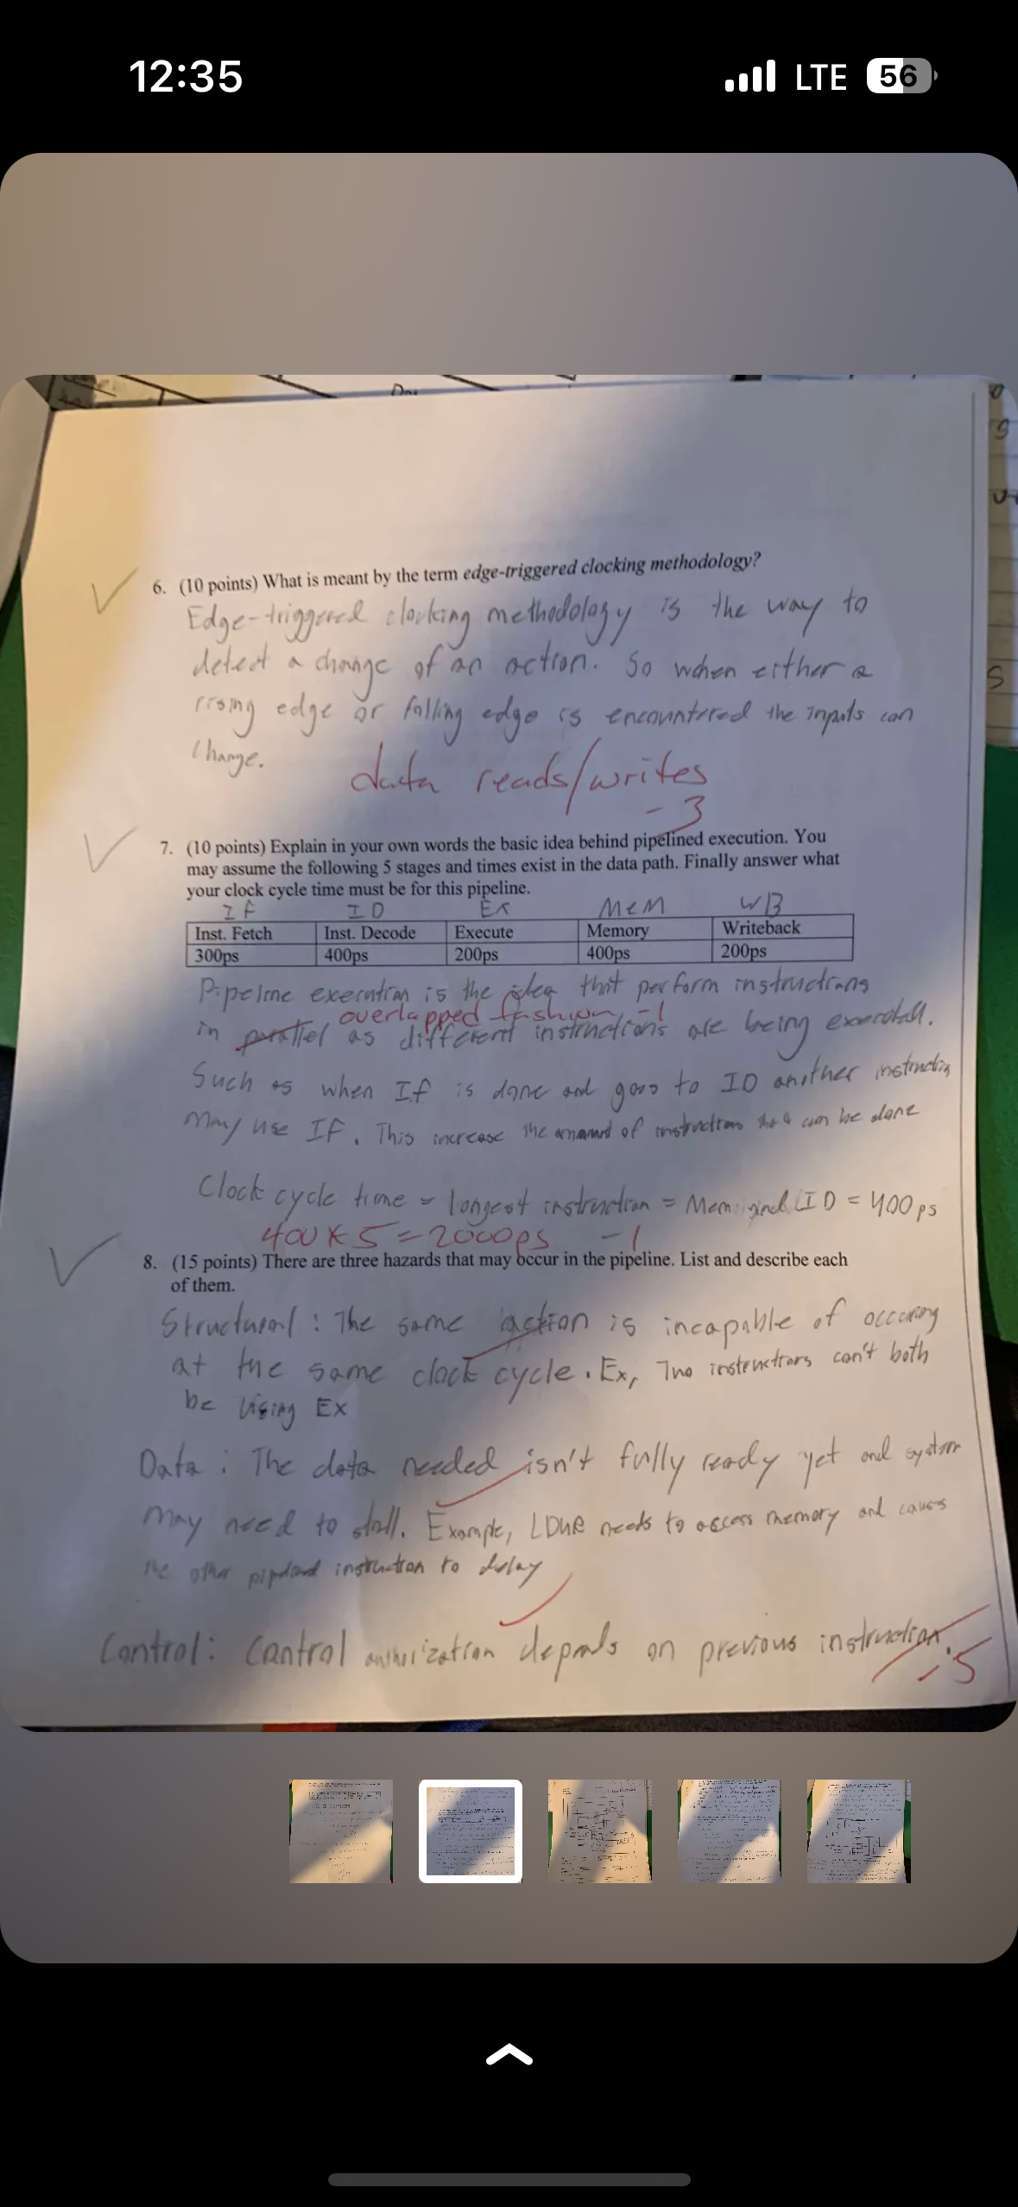 12:35
LTE 56
6. (10 points) What is meant by the term edge-triggered clocking methodology?
Edge-triggered clocking methodology is the way to
detect a change of an action. So when either a
rising edge or falling edge is encountered the inputs can
change.
data reads/writes
-3
7. (10 points) Explain in your own words the basic idea behind pipelined execution. You
may assume the following 5 stages and times exist in the data path. Finally answer what
your clock cycle time must be for this pipeline.
IF ID EX MEM WB
Inst. Fetch Inst. Decode Execute Memory Writeback
300ps 400ps 200ps 400ps 200ps
Pipeline execution is the idea that perform instructions
overlapped fashion -1
in parallel as different instructions are being executed.
Such as when IF is done and goes to ID another instruction
may use IF. This increase the amount of instructions that can be done
Clock cycle time = longest instruction = Mem and ID = 400ps
400 x 5 = 2000ps -1
8. (15 points) There are three hazards that may occur in the pipeline. List and describe each
of them.
Structural: The same action is incapable of occuring
at the same clock cycle. Ex, Two instructions can't both
be using EX
Data: The data needed isn't fully ready yet and system
may need to stall. Example, LDUR needs to access memory and causes
the other pipelined instruction to delay
Control: Control depends on previous instruction.
-5